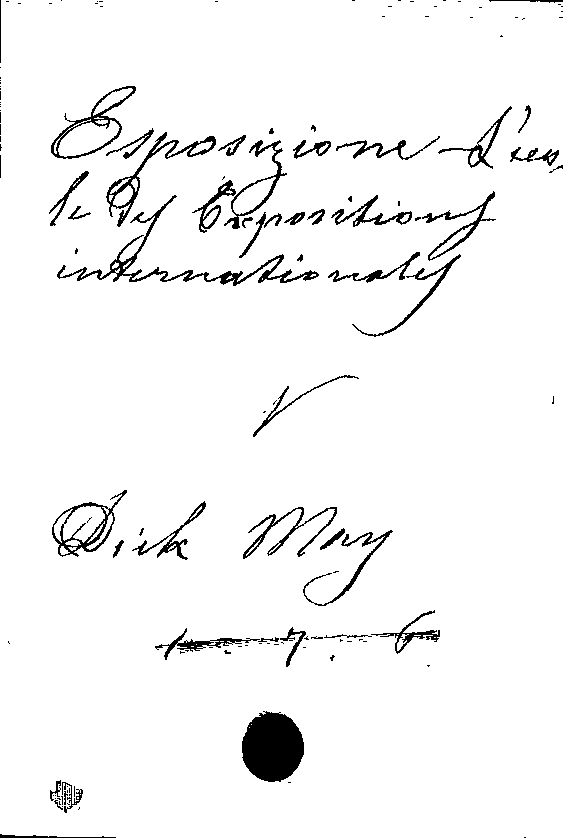 Esposizione - L'eco
le des Expositions
internationales
V
Dick May
1. 7. 6